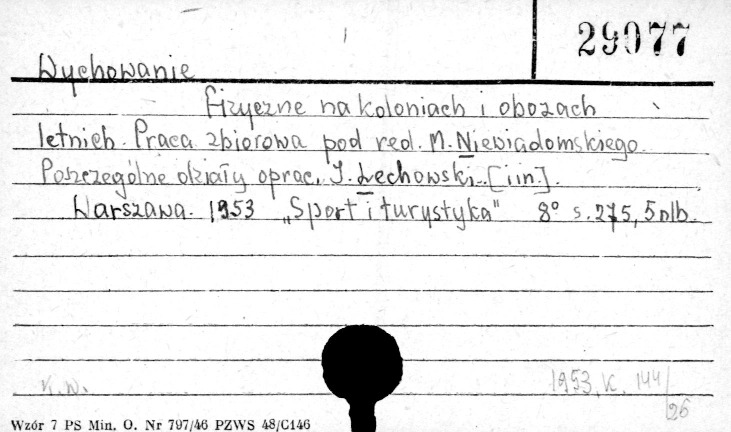 29077
Wychowanie
fizyczne na koloniach i obozach
letnich. Praca zbiorowa pod red. M. Niewiadomskiego.
Poszczególne działy oprac. J. Lechowski. [i in.].
Warszawa. 1953 „Sport i turystyka" 8° s. 275, 5 nlb.
K.W.
1953, K. 144/26
Wzór 7 PS Min. O. Nr 797/46 PZWS 48/C146